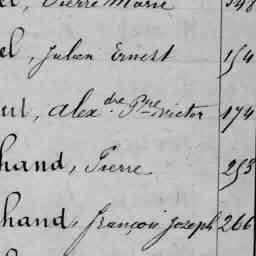 el, Pierre Marie 348
el, Julien Ernest 154
ut, Alexdre Pre Victor 174
hand, Pierre 253
hand, François Joseph 266